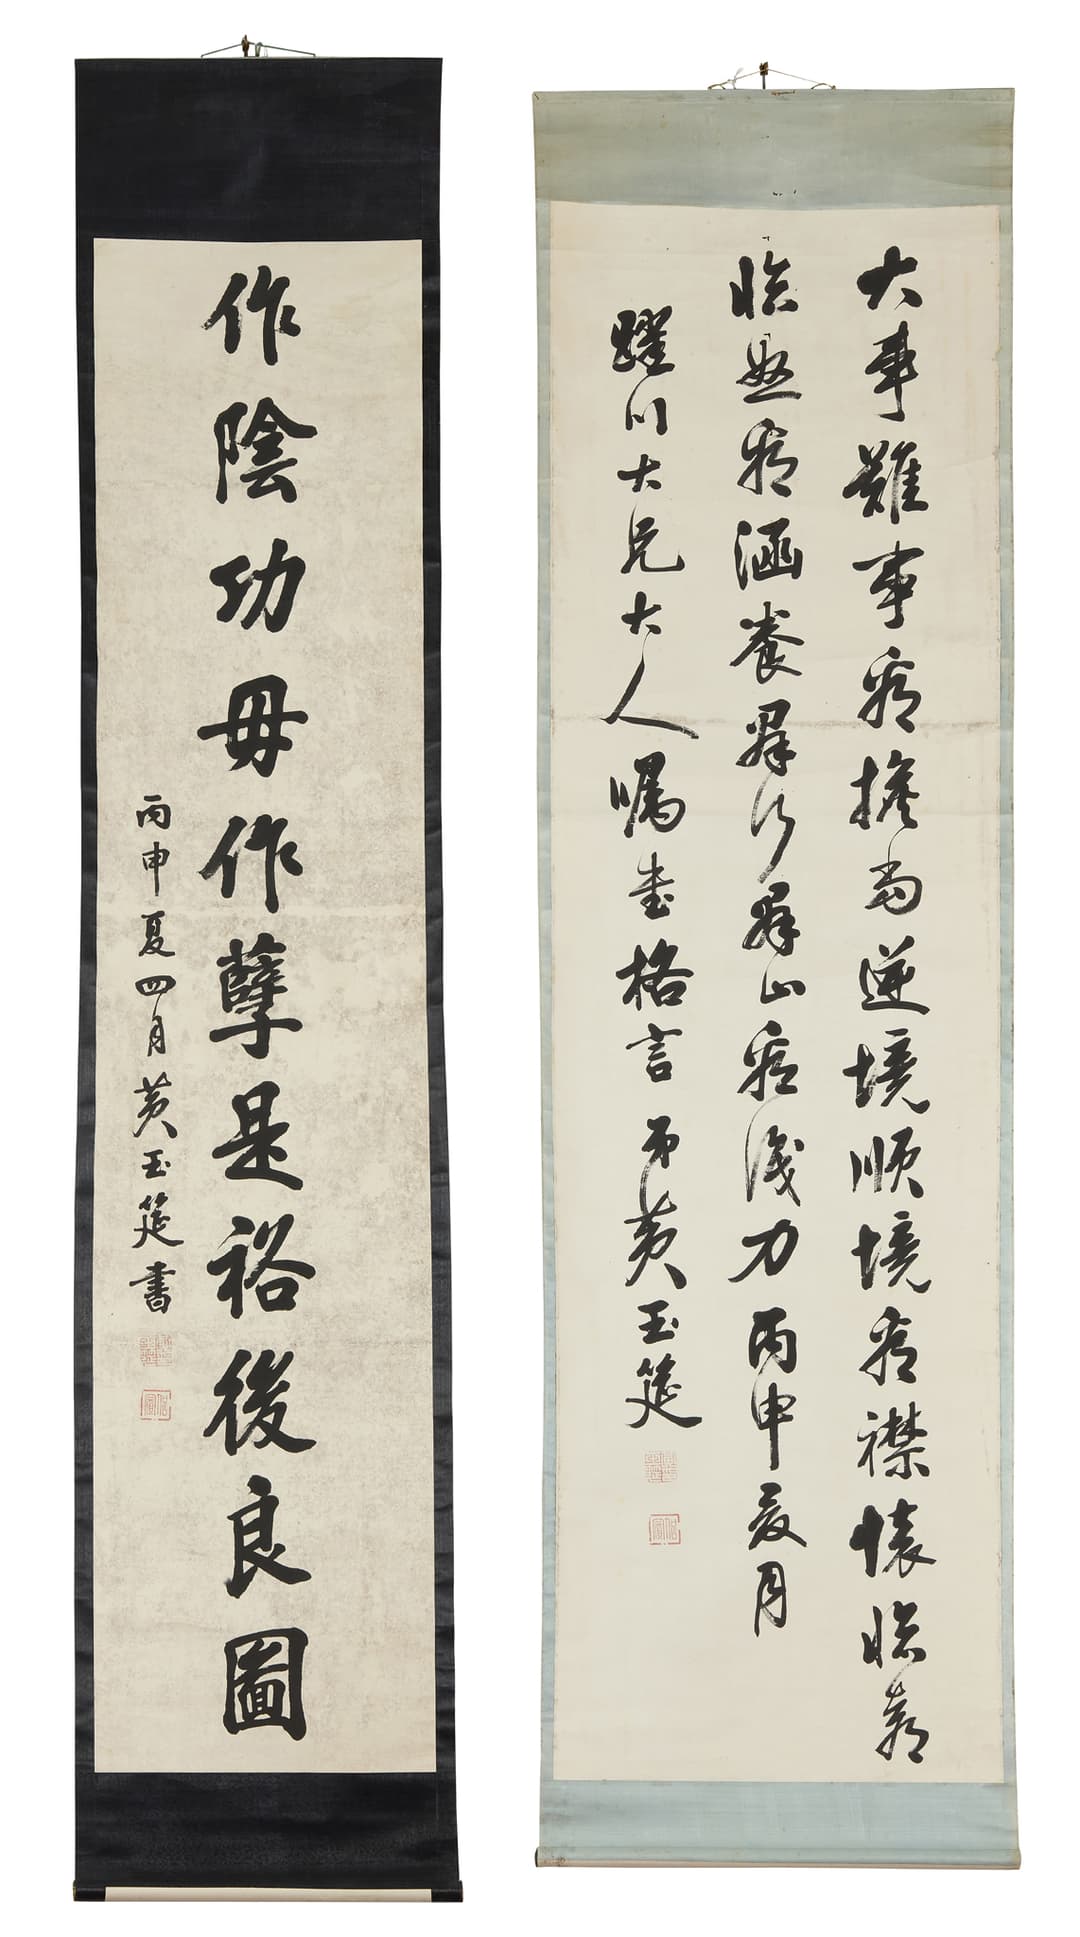 大事難事看擔當逆境順境看襟懷臨喜
臨怒看涵養羣行羣止看識力丙申夏月
躍川大兄大人囑書格言弟黃玉筵
作陰功毋作孽是裕後良圖
丙申夏四月黃玉筵書